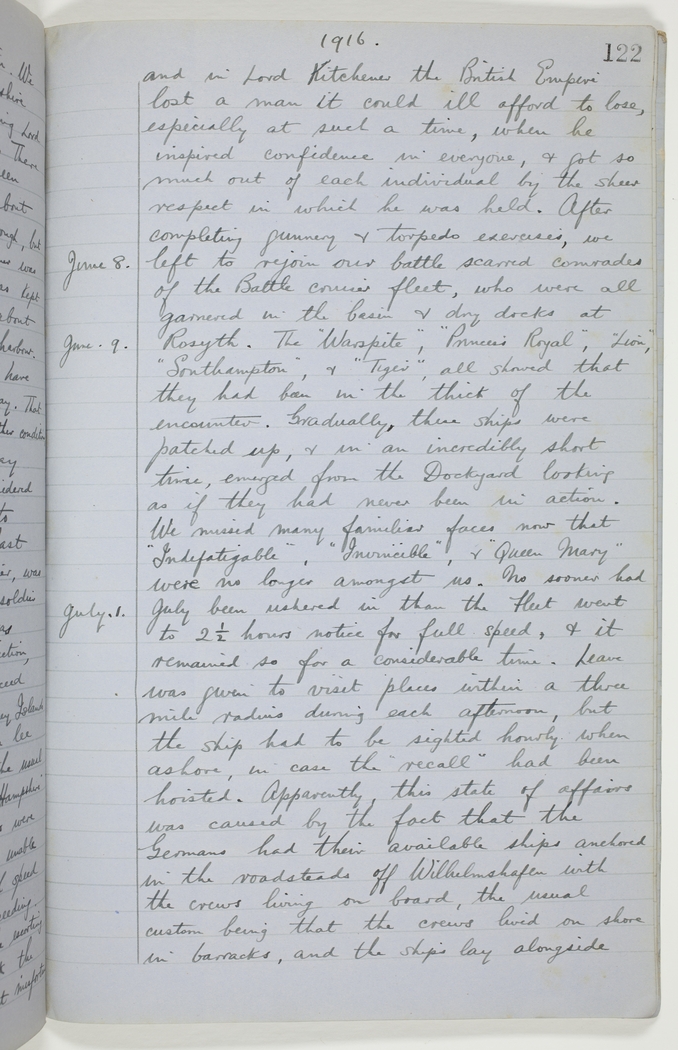 1916.
122
and in Lord Kitchener the British Empire
lost a man it could ill afford to lose,
especially at such a time, when he
inspired confidence in everyone, & got so
much out of each individual by the sheer
respect in which he was held. After
completing gunnery & torpedo exercises, we
June 8. left to rejoin our battle scarred comrades
of the Battle cruiser fleet, who were all
garnered in the basin & dry docks at
June. 9. Rosyth. The "Warspite", "Princess Royal", "Lion",
"Southampton", & "Tiger", all showed that
they had been in the thick of the
encounter. Gradually, these ships were
patched up, & in an incredibly short
time, emerged from the Dockyard looking
as if they had never been in action.
We missed many familiar faces now that
"Indefatigable", "Invincible", & "Queen Mary"
were no longer amongst us. No sooner had
July. 1. July been ushered in than the Fleet went
to 2½ hours notice for full speed, & it
remained so for a considerable time. Leave
was given to visit places within a three
mile radius during each afternoon, but
the ship had to be sighted hourly when
ashore, in case the "recall" had been
hoisted. Apparently, this state of affairs
was caused by the fact that the
Germans had their available ships anchored
in the roadsteads off Wilhelmshafen with
the crews living on board, the usual
custom being that the crews lived on shore
in barracks, and the ships lay alongside